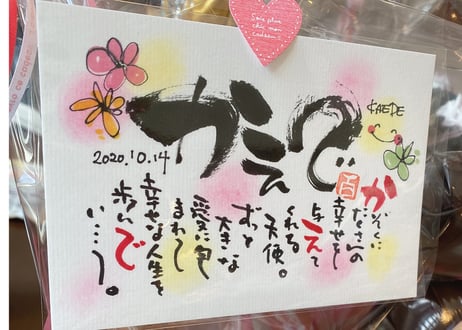 かえで
KAEDE
2020.10.14
かぞくに
たくさんの
幸せを
与えて
くれる
天使。
ずっと
大きな
愛に包
まれて
幸せな人生を
歩んで